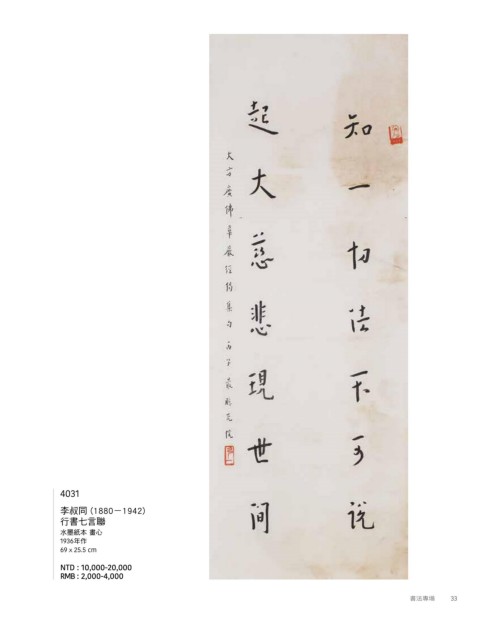 知一切法不可說
起大慈悲現世間
大方廣佛華嚴經偈集句 丙子
4031
李叔同 (1880－1942)
行書七言聯
水墨紙本 畫心
1936年作
69 x 25.5 cm
NTD : 10,000-20,000
RMB : 2,000-4,000
書法專場 33